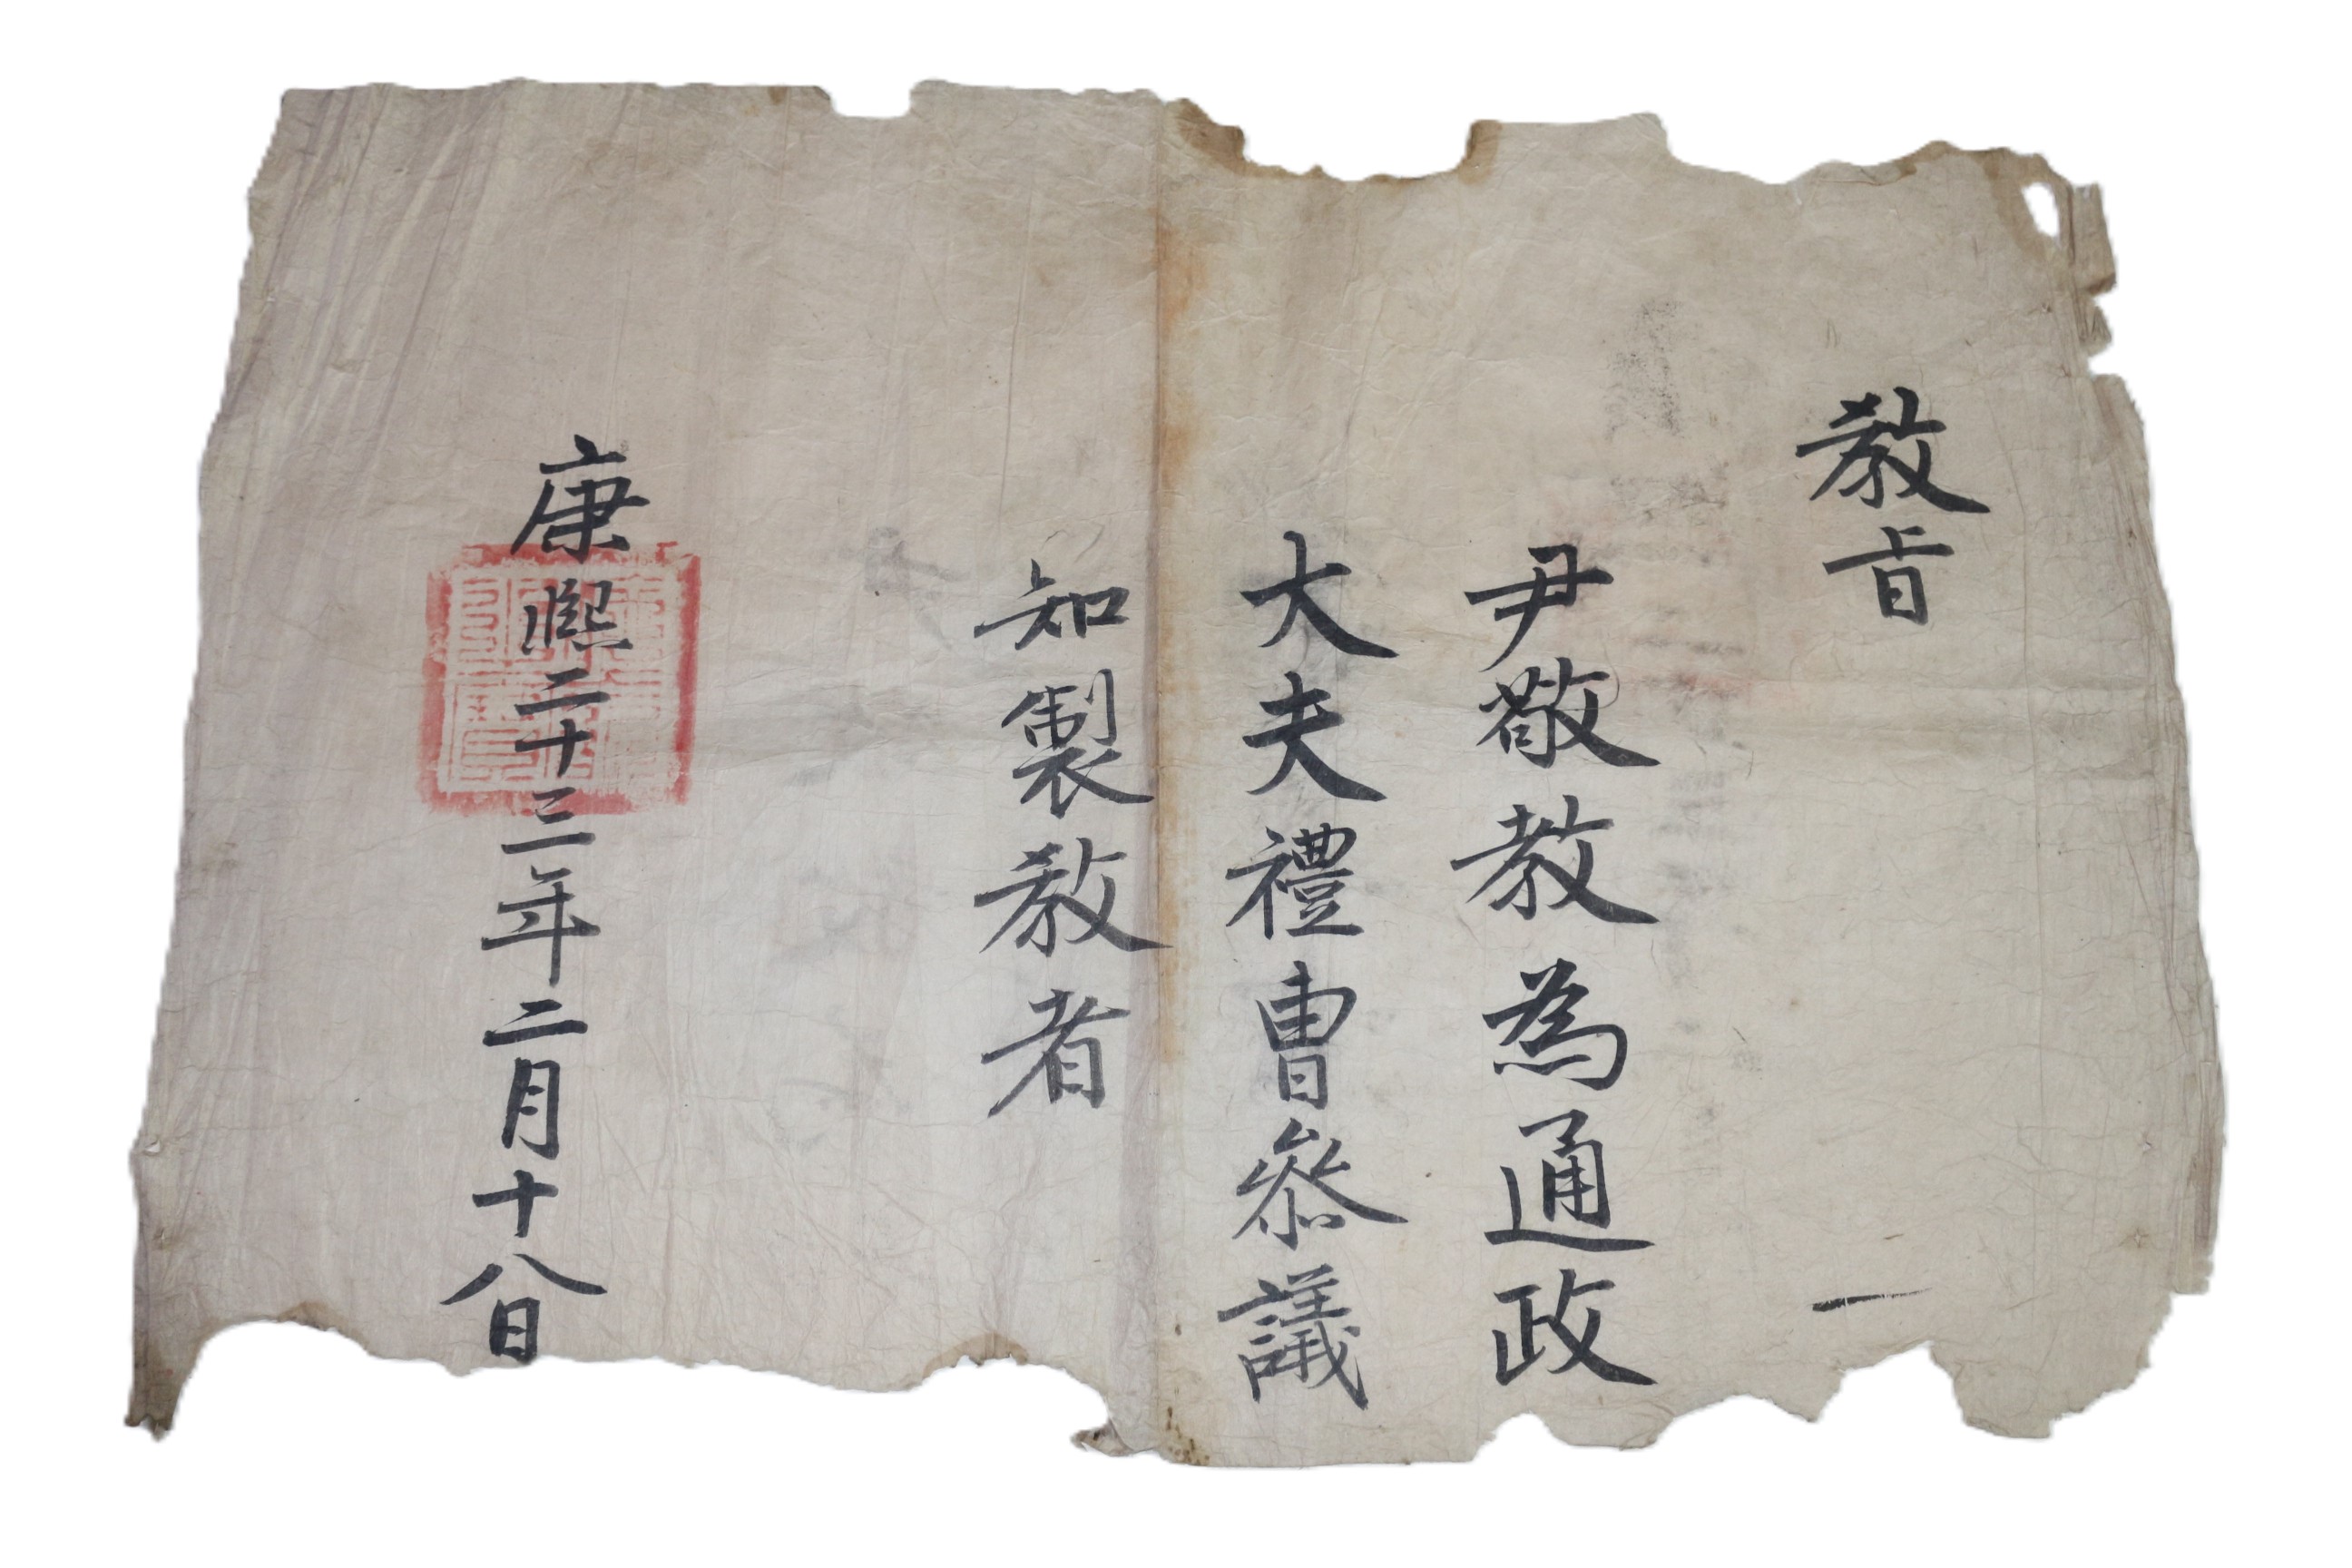 教旨
尹敬教為通政
大夫禮曹參議
知製教者
康熙二十三年二月十八日